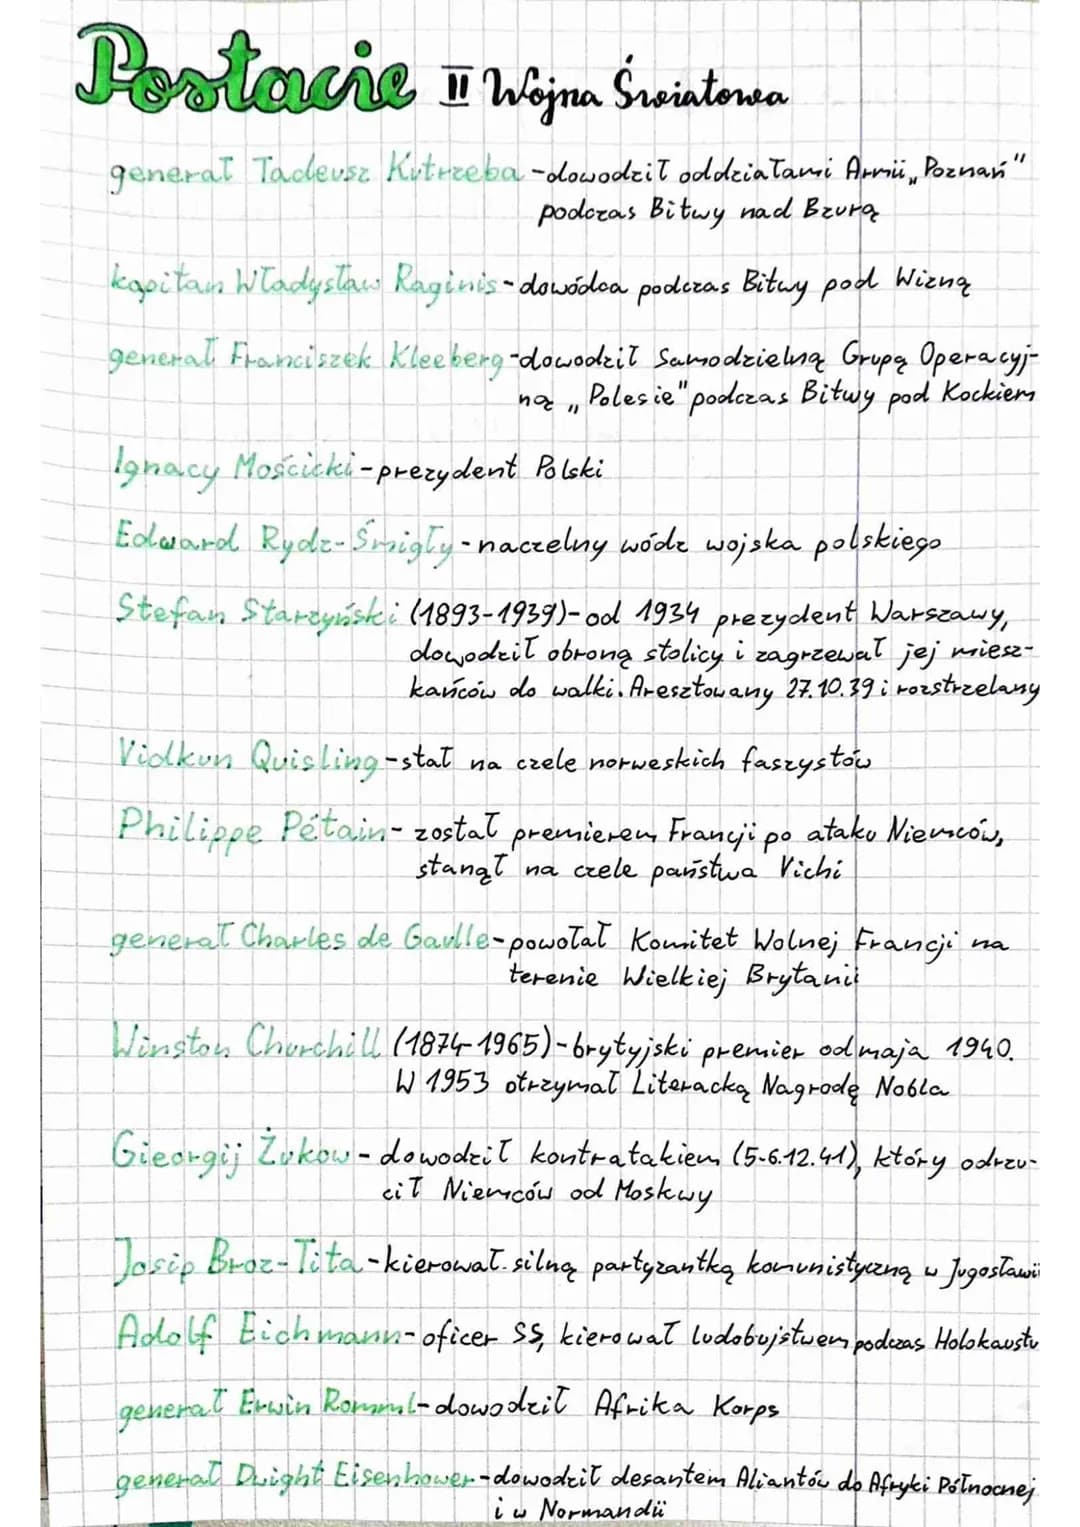 Postacie II Wojna Światowa
generał Tadeusz Kutrzeba - dowodził oddziałami Armii „Poznań"
podczas Bitwy nad Bzurą
kapitan Władysław Raginis - dowódca podczas Bitwy pod Wizną
generał Franciszek Kleeberg - dowodził Samodzielną Grupą Operacyj-
ną „Polesie" podczas Bitwy pod Kockiem
Ignacy Mościcki - prezydent Polski
Edward Rydz-Śmigły - naczelny wódz wojska polskiego
Stefan Starzyński (1893-1939) - od 1934 prezydent Warszawy,
dowodził obroną stolicy i zagrzewał jej miesz-
kańców do walki. Aresztowany 27.10.39 i rozstrzelany
Vidkun Quisling - stał na czele norweskich faszystów
Philippe Pétain - został premierem Francji po ataku Niemców,
stanął na czele państwa Vichi
generał Charles de Gaulle - powołał Komitet Wolnej Francji na
terenie Wielkiej Brytanii
Winston Churchill (1874-1965) - brytyjski premier od maja 1940.
W 1953 otrzymał Literacką Nagrodę Nobla
Gieorgij Żukow - dowodził kontratakiem (5-6.12.41), który odrzu-
cił Niemców od Moskwy
Josip Broz-Tita - kierował silną partyzantką komunistyczną w Jugosławii
Adolf Eichmann - oficer SS, kierował ludobujstwem podczas Holokaustu
generał Erwin Romml - dowodził Afrika Korps
generał Dwight Eisenhower - dowodził desantem Aliantów do Afryki Północnej
i w Normandii